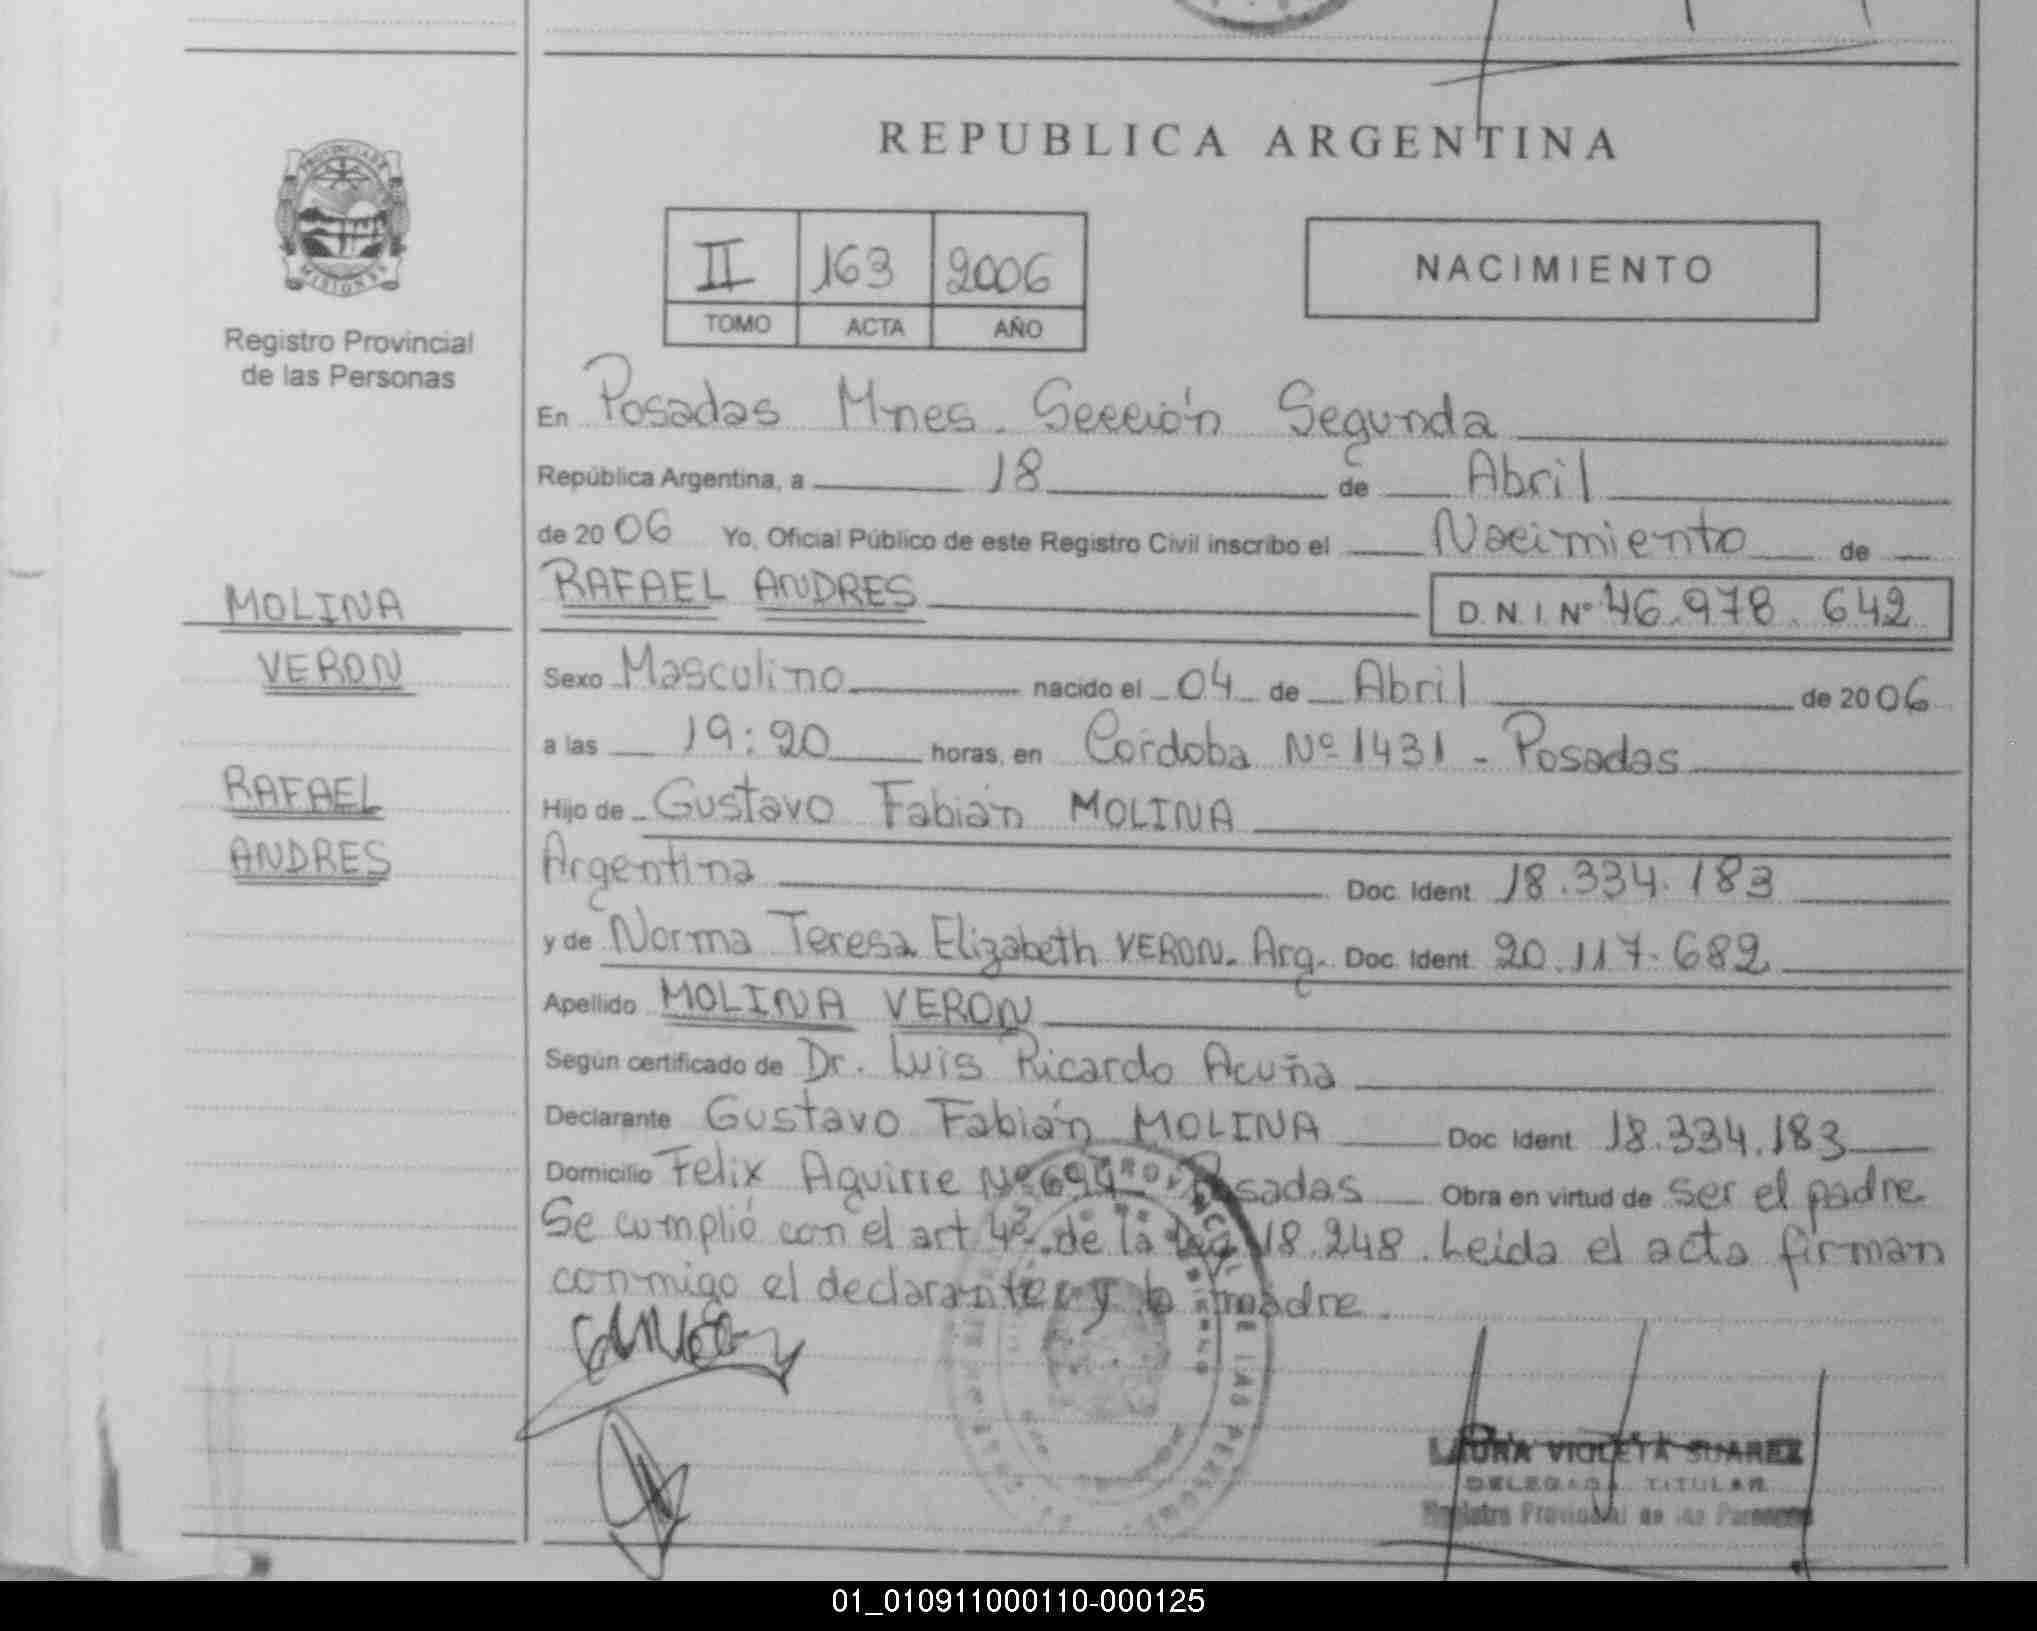 REPUBLICA ARGENTINA
PROVINCIA DE
MISIONES
Registro Provincial
de las Personas
II 163 2006
TOMO ACTA AÑO
NACIMIENTO
En Posadas Mnes. Sección Segunda
República Argentina, a 18 de Abril
de 2006 Yo, Oficial Público de este Registro Civil inscribo el Nacimiento de
RAFAEL ANDRES D.N.I. Nº 46.978.642
MOLINA
VERON
RAFAEL
ANDRES
Sexo Masculino nacido el 04 de Abril de 2006
a las 19:20 horas, en Córdoba Nº 1431 - Posadas
Hijo de Gustavo Fabián MOLINA
Argentina Doc. Ident. 18.334.183
y de Norma Teresa Elizabeth VERON. Arg. Doc. Ident. 20.117.682
Apellido MOLINA VERON
Según certificado de Dr. Luis Ricardo Acuña
Declarante Gustavo Fabián MOLINA Doc. Ident. 18.334.183
Domicilio Felix Aguirre Nº Posadas Obra en virtud de ser el padre
Se cumplió con el art 4º. de la Ley 18.248. Leida el acta firman
conmigo el declarante y la madre.
LAURA VIOLETA SUAREZ
DELEGADA TITULAR
Registro Provincial de las Personas
01_010911000110-000125